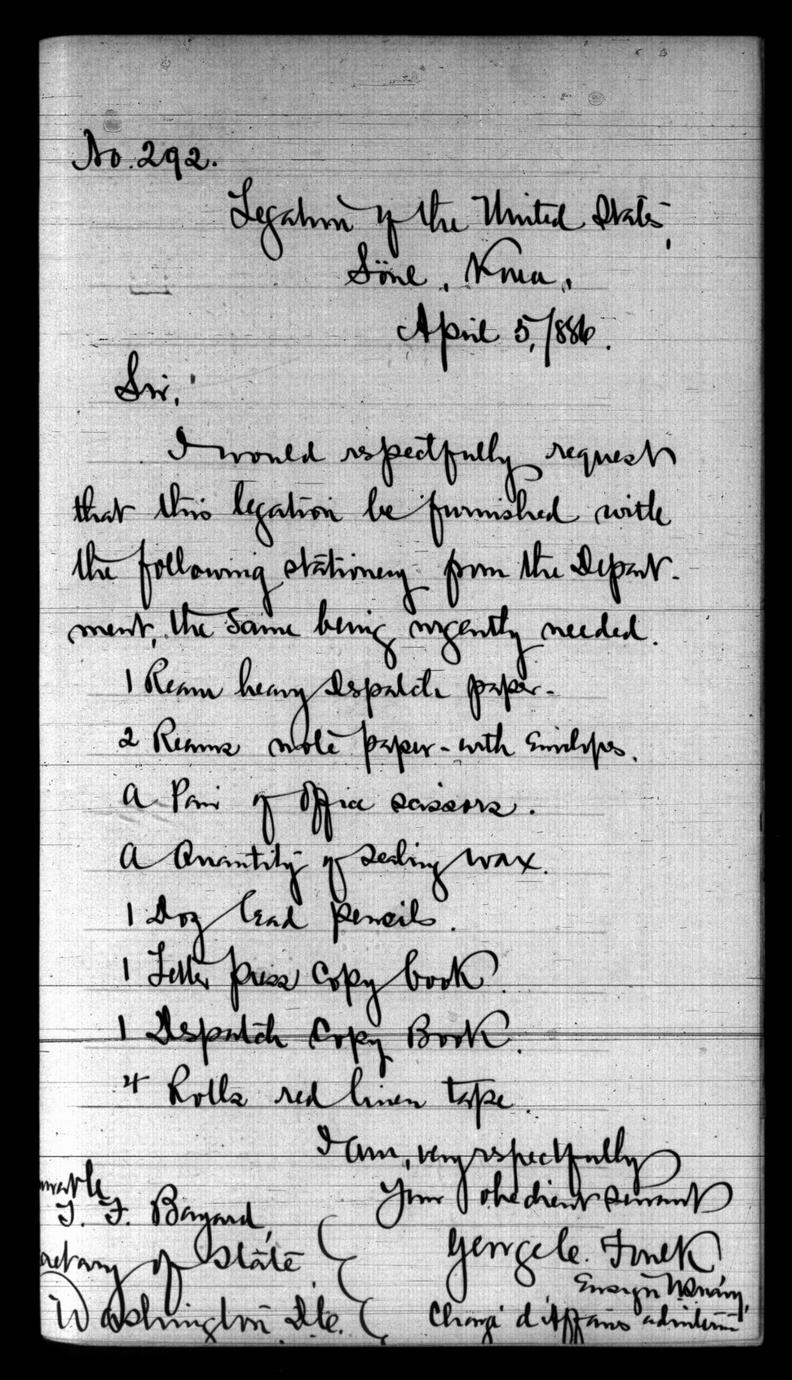 No. 292.
Legation of the United States,
Söul, Korea,
April 5, 1886.
Sir,
I would respectfully request
that this legation be furnished with
the following stationery from the Depart-
ment, the same being urgently needed.
1 Ream heavy Despatch paper-
2 Reams note paper-with Envelopes.
A Pair of office scissors.
A Quantity of Sealing Wax.
1 Doz lead pencils.
1 Letter press Copy book.
1 Despatch Copy Book.
4 Rolls red linen tape.
I am, very respectfully
Your obedient servant
George C. Foulk
Ensign U.S. Navy,
Chargé d'Affaires ad interim
T. F. Bayard,
of State
Washington D.C.